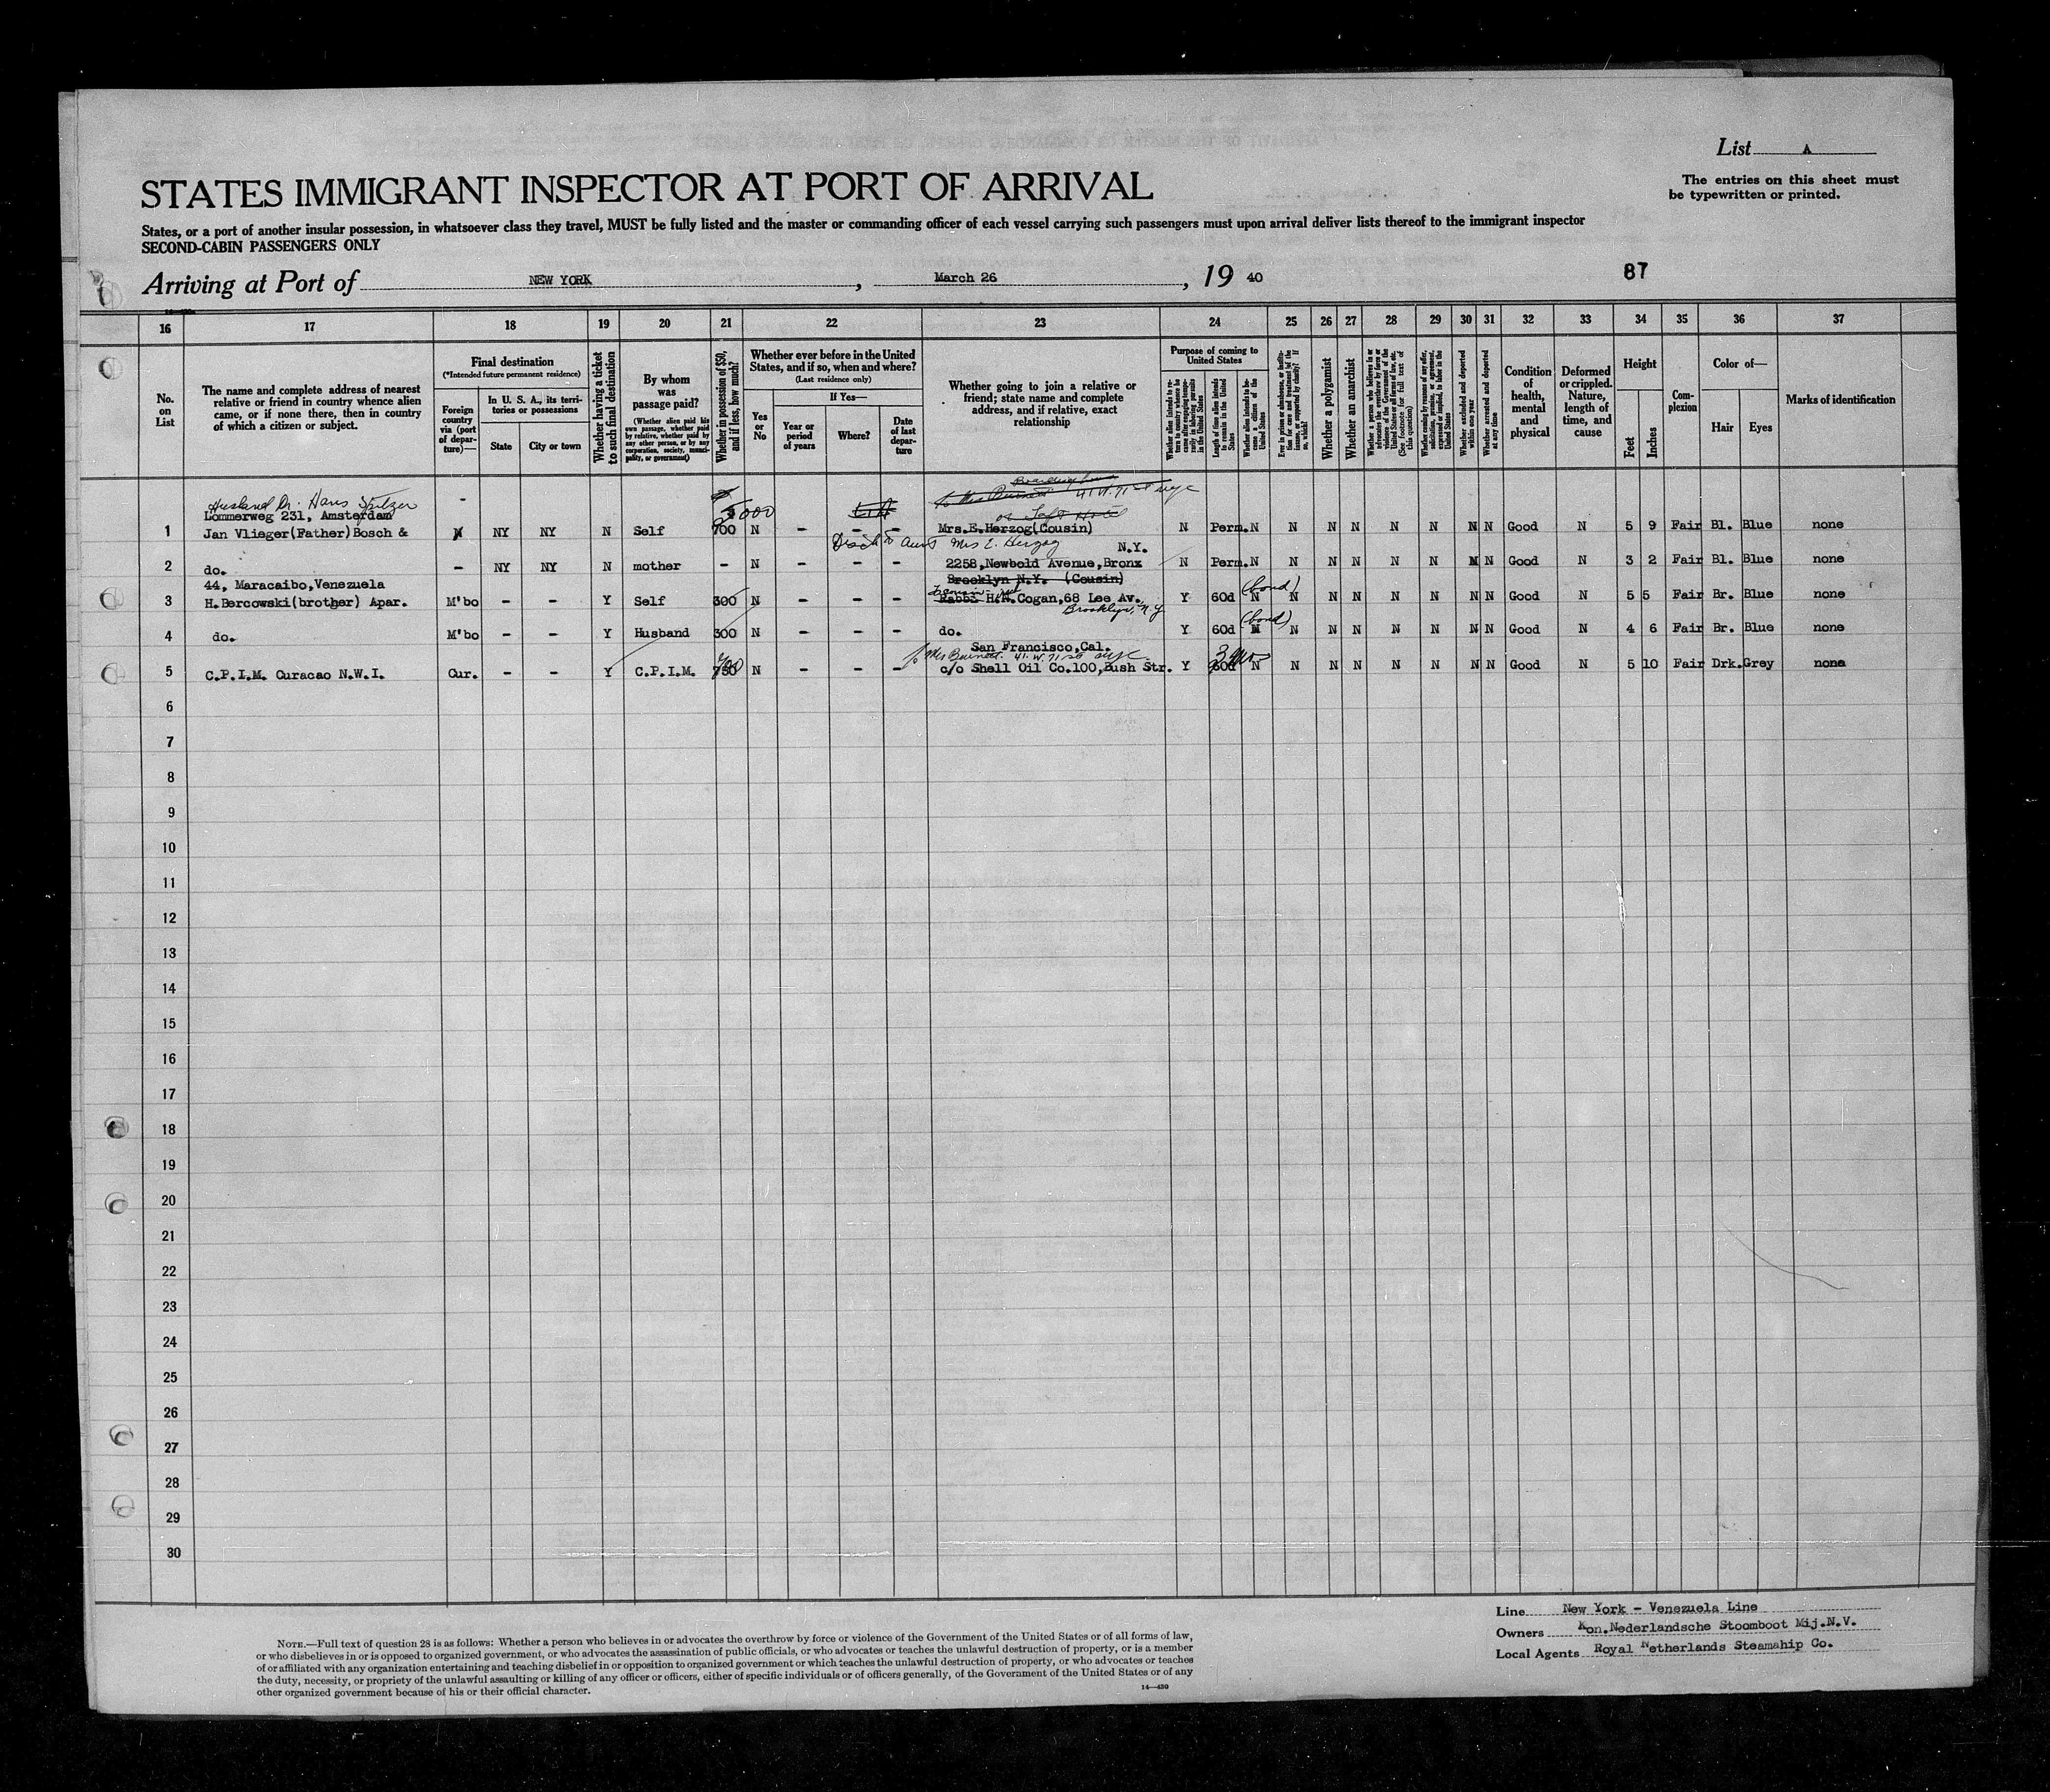 List A
STATES IMMIGRANT INSPECTOR AT PORT OF ARRIVAL
The entries on this sheet must
be typewritten or printed.
States, or a port of another insular possession, in whatsoever class they travel, MUST be fully listed and the master or commanding officer of each vessel carrying such passengers must upon arrival deliver lists thereof to the immigrant inspector
SECOND-CABIN PASSENGERS ONLY
Arriving at Port of NEW YORK, March 26, 19 40
87
16 17 18 19 20 21 22 23 24 25 26 27 28 29 30 31 32 33 34 35 36 37
No. on List
The name and complete address of nearest relative or friend in country whence alien came, or if none there, then in country of which a citizen or subject.
Final destination
(*Intended future permanent residence)
Foreign country via (port of departure)—
In U. S. A., its territories or possessions
State
City or town
Whether having a ticket to such final destination
By whom was passage paid?
(Whether alien paid his own passage, whether paid by relative, whether paid by any other person, or by any corporation, society, municipality, or government)
Whether in possession of $50, and if less, how much?
Whether ever before in the United States, and if so, when and where?
(Last residence only)
Yes or No
If Yes—
Year or period of years
Where?
Date of last departure
Whether going to join a relative or friend; state name and complete address, and if relative, exact relationship
Purpose of coming to United States
Length of time alien intends to remain in the United States
Whether alien intends to become a citizen of the United States
Whether a polygamist
Whether an anarchist
Whether excluded and deported within one year
Whether arrested and deported at any time
Condition of health, mental and physical
Deformed or crippled. Nature, length of time, and cause
Height
Feet
Inches
Complexion
Color of—
Hair
Eyes
Marks of identification
Husband Dr. Hans Spitzer
Lommerweg 231, Amsterdam
1 Jan Vlieger(Father)Bosch & - NY NY N Self 700 5000 N - - - Mrs.E.Herzog(Cousin) N Perm. N N N N N N N N Good N 5 9 Fair Bl. Blue none
to Mrs Burnett 41 W. 71 st nyc
or Taft Hotel
Disch to aunt Mrs E. Herzog
N.Y.
2 do. - NY NY N mother - N - - - 2258,Newbold Avenue,Bronx N Perm. N N N N N N N N Good N 3 2 Fair Bl. Blue none
44, Maracaibo,Venezuela
Brooklyn N.Y. (Cousin)
(bond)
3 H.Bercowski(brother) Apar. M'bo - - Y Self 300 N - - - Rabbi H.N.Cogan,68 Lee Av. Y 60d N N N N N N N N Good N 5 5 Fair Br. Blue none
Brooklyn, N.Y.
(bond)
4 do. M'bo - - Y Husband 300 N - - - do. Y 60d N N N N N N N N Good N 4 6 Fair Br. Blue none
San Francisco,Cal.
to Mrs Burnett. 41. W. 71 st nyc
5 C.P.I.M. Curacao N.W.I. Cur. - - Y C.P.I.M. 750 700 N - - - c/o Shell Oil Co.100,Bush Str. Y 60d N N N N N N N N Good N 5 10 Fair Drk. Grey none
6
7
8
9
10
11
12
13
14
15
16
17
18
19
20
21
22
23
24
25
26
27
28
29
30
NOTE.—Full text of question 28 is as follows: Whether a person who believes in or advocates the overthrow by force or violence of the Government of the United States or of all forms of law,
or who disbelieves in or is opposed to organized government, or who advocates the assassination of public officials, or who advocates or teaches the unlawful destruction of property, or is a member
of or affiliated with any organization entertaining and teaching disbelief in or opposition to organized government or which teaches the unlawful destruction of property, or who advocates or teaches
the duty, necessity, or propriety of the unlawful assaulting or killing of any officer or officers, either of specific individuals or of officers generally, of the Government of the United States or of any
other organized government because of his or their official character.
14—430
Line New York - Venezuela Line
Owners Kon.Nederlandsche Stoomboot Mij.N.V.
Local Agents Royal Netherlands Steamship Co.